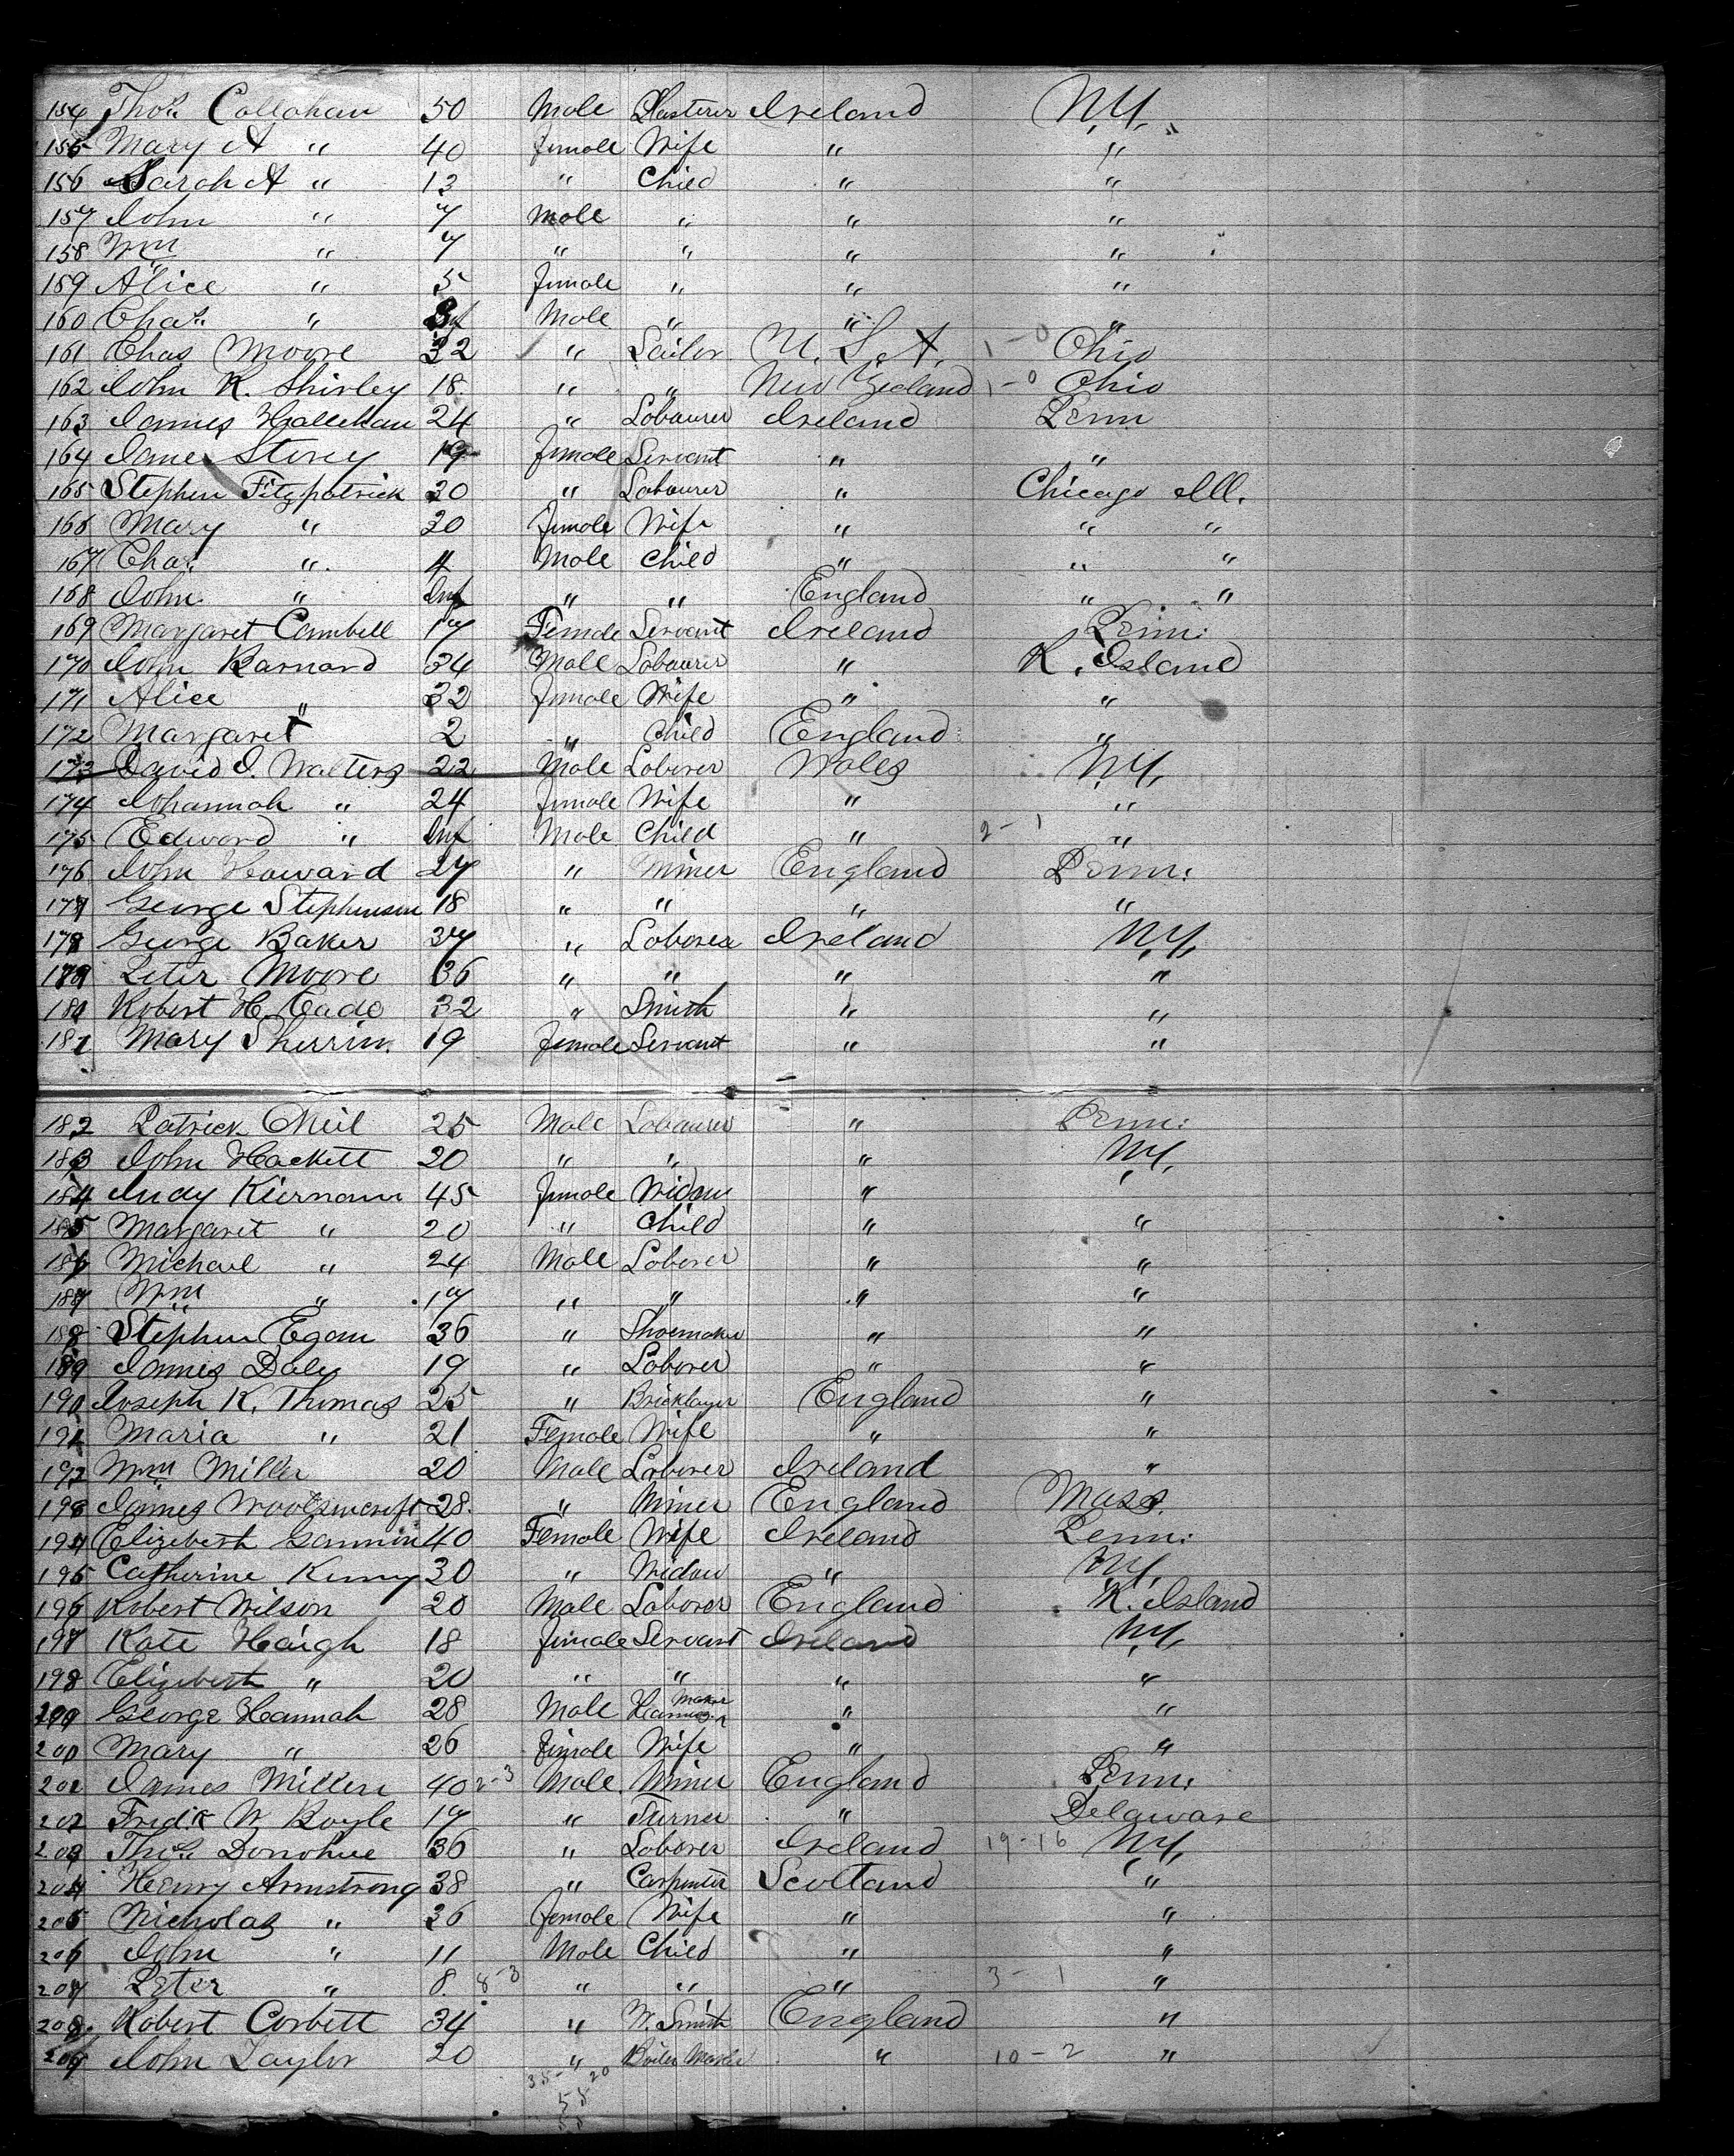 154 Thos. Callahan 50 Male Plasterer Ireland N.Y.
155 Mary A " 40 Female Wife " "
156 Sarah A " 13 " Child " "
157 John " 7 Male " " "
158 Wm " 7 " " " "
159 Alice " 5 Female " " "
160 Chas. " Inf Male " " "
161 Chas Moore 32 " Sailor U.S.A. 1-0 Ohio
162 John R. Shirley 18 " " New Zealand 1-0 Ohio
163 James Hallehan 24 " Labourer Ireland Penn
164 Jane Storey 19 Female Servant " "
165 Stephen Fitzpatrick 30 " Labourer " Chicago Ill.
166 Mary " 20 Female Wife " " "
167 Chas. " 4 Male Child " " "
168 John " Inf " " England " "
169 Margaret Cambell 17 Female Servant Ireland Penn:
170 John Barnard 34 Male Labourer " R. Island
171 Alice " 32 Female Wife " "
172 Margaret 2 " Child England "
173 David J. Walters 22 Male Laborer Wales N.Y.
174 Johannah " 24 Female Wife " "
175 Edward " Inf Male Child " 2-1 "
176 John Howard 27 " Miner England Penn:
177 George Stephenson 18 " " " "
178 George Baker 37 " Laborer Ireland N.Y.
179 Peter Moore 36 " " " "
180 Robert H. Cade 32 " Smith " "
181 Mary Sherrin 19 Female Servant " "
182 Patrick ONeil 25 Male Labourer " Penn:
183 John Hackett 20 " " " N.Y.
184 Judy Kiernan 45 Female Widow "
185 Margaret " 20 " Child " "
186 Michael " 24 Male Laborer " "
187 Wm " 17 " " " "
188 Stephen Egan 36 " Shoemaker " "
189 James Daly 19 " Laborer " "
190 Joseph K. Thomas 25 " Bricklayer England "
191 Maria " 21 Female Wife " "
192 Wm Miller 20 Male Laborer Ireland "
193 James 28 " Miner England Mass.
194 Elizebeth Gannin 40 Female Wife Ireland Penn:
195 Catherine Kenny 30 " Widow " N.Y.
196 Robert Wilson 20 Male Laborer England R. Island
197 Kate Haigh 18 Female Servant Ireland N.Y.
198 Elizebeth " 20 " " " "
199 George Hannah 28 Male Harness Maker " "
200 Mary " 26 Female Wife " "
201 James Millen 40 2-3 Male Miner England Penn:
202 Fredk W Boyle 17 " Turner " Delaware
203 Thos. Donohue 36 " Laborer Ireland 19-16 N.Y.
204 Henry Armstrong 38 " Carpenter Scotland "
205 Nicholas " 36 Female Wife " "
206 John " 11 Male Child " "
207 Peter " 8 8-3 " " " 3-1 "
208 Robert Corbett 34 " W. Smith England "
209 John Taylor 20 " Boiler Maker " 10-2 "
38-20
58